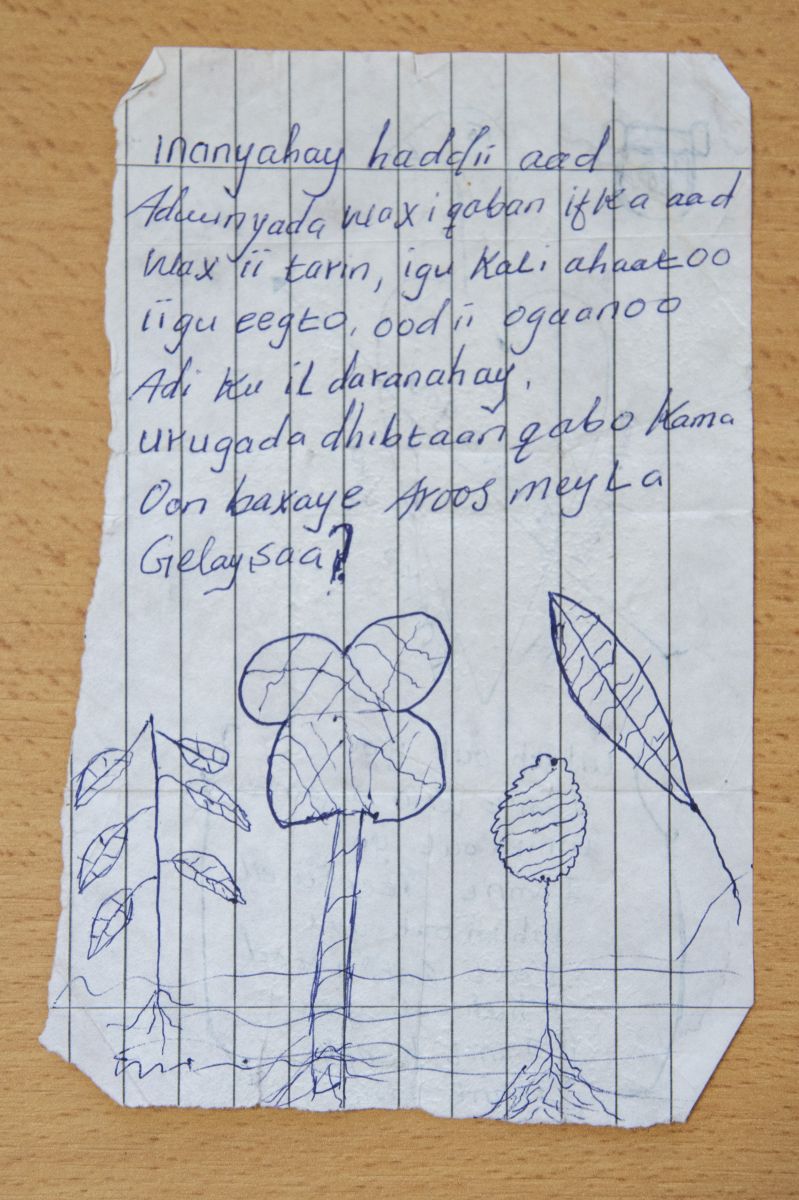 inanyahay haddii aad
Aduunyada wax i qaban ifka aad
wax ii tarin, igu kali ahaatoo
iigu eegto, oodii ogaanoo
Adi ku il daranahay,
urugada dhibtaan qabo kama
Oon baxaye Aroos mey La
Gelaysaa?